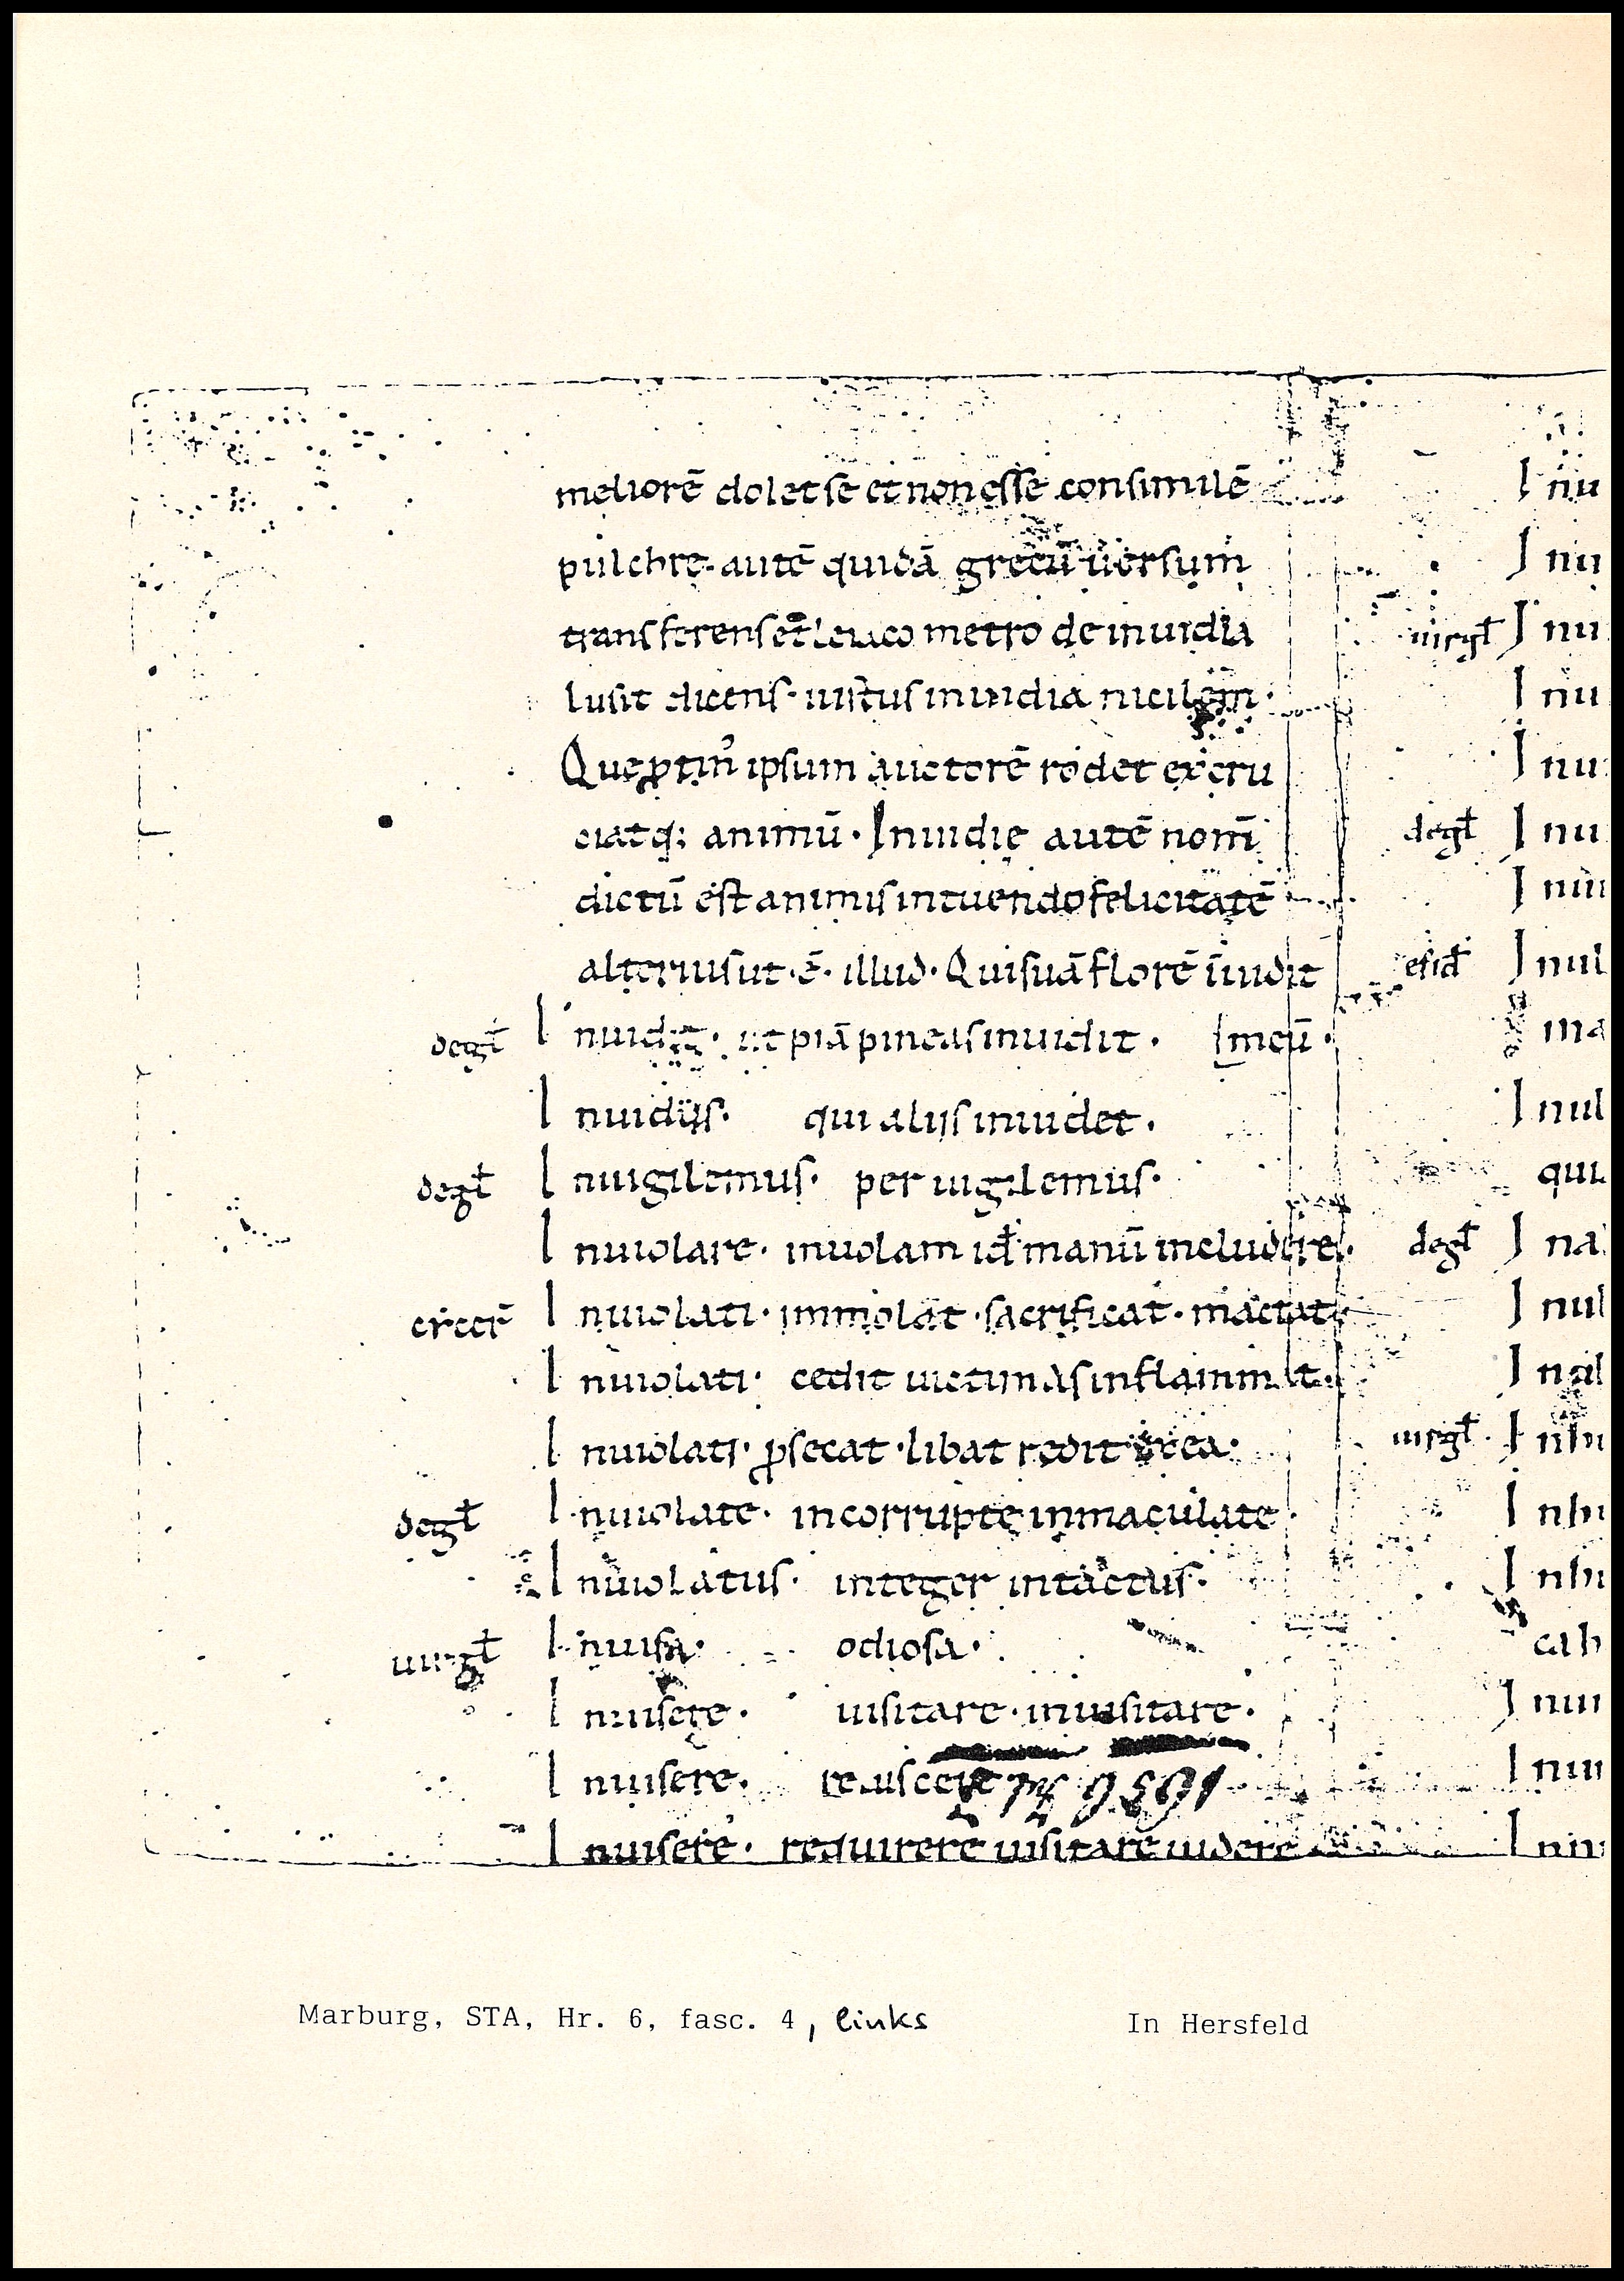 meliorē dolet se et non esse consimilē
pulchrę autē quidā grecū uersum
transferens metro de inuidia
lusit dicens · iustus inuidia nicil
Quę ipsum auctorē rodet excru
ciatq; animū · Inuidię autē nom̄
dictū est a nimis intuendo felicitatē
alterius ut · ē · illud · Quisuā florē inuidit
degł Inuidia · ut piā pineas inuidit · meū ·
Inuidijs · qui alijs inuidet ·
degł Inuigilemus · per uigilemus ·
Inuiolare · inuolam id manū includere ·
Inuiolati · immolat · sacrificat · mactat ·
Inuiolati · cedit uictimas inflammat ·
Inuiolati · ꝓsecat · libat
degł Inuiolate · incorruptę inmaculate ·
Inuiolatus · integer intactus ·
uirgł Inuisa · odiosa ·
Inuisere · uisitare · inuisitare ·
Inuisere · reuiscere
1636
Inuisere · requirere uisitare uidere
I nu
I nu
uirgł I nu
I nu
I nu
degł I nu
I nu
esid I nul
ma
I nul
qui
degł I na
I nul
I nal
uirgł I nhi
I nhi
I nhi
cah
I nui
I nui
I nin
Marburg, STA, Hr. 6, fasc. 4, links In Hersfeld